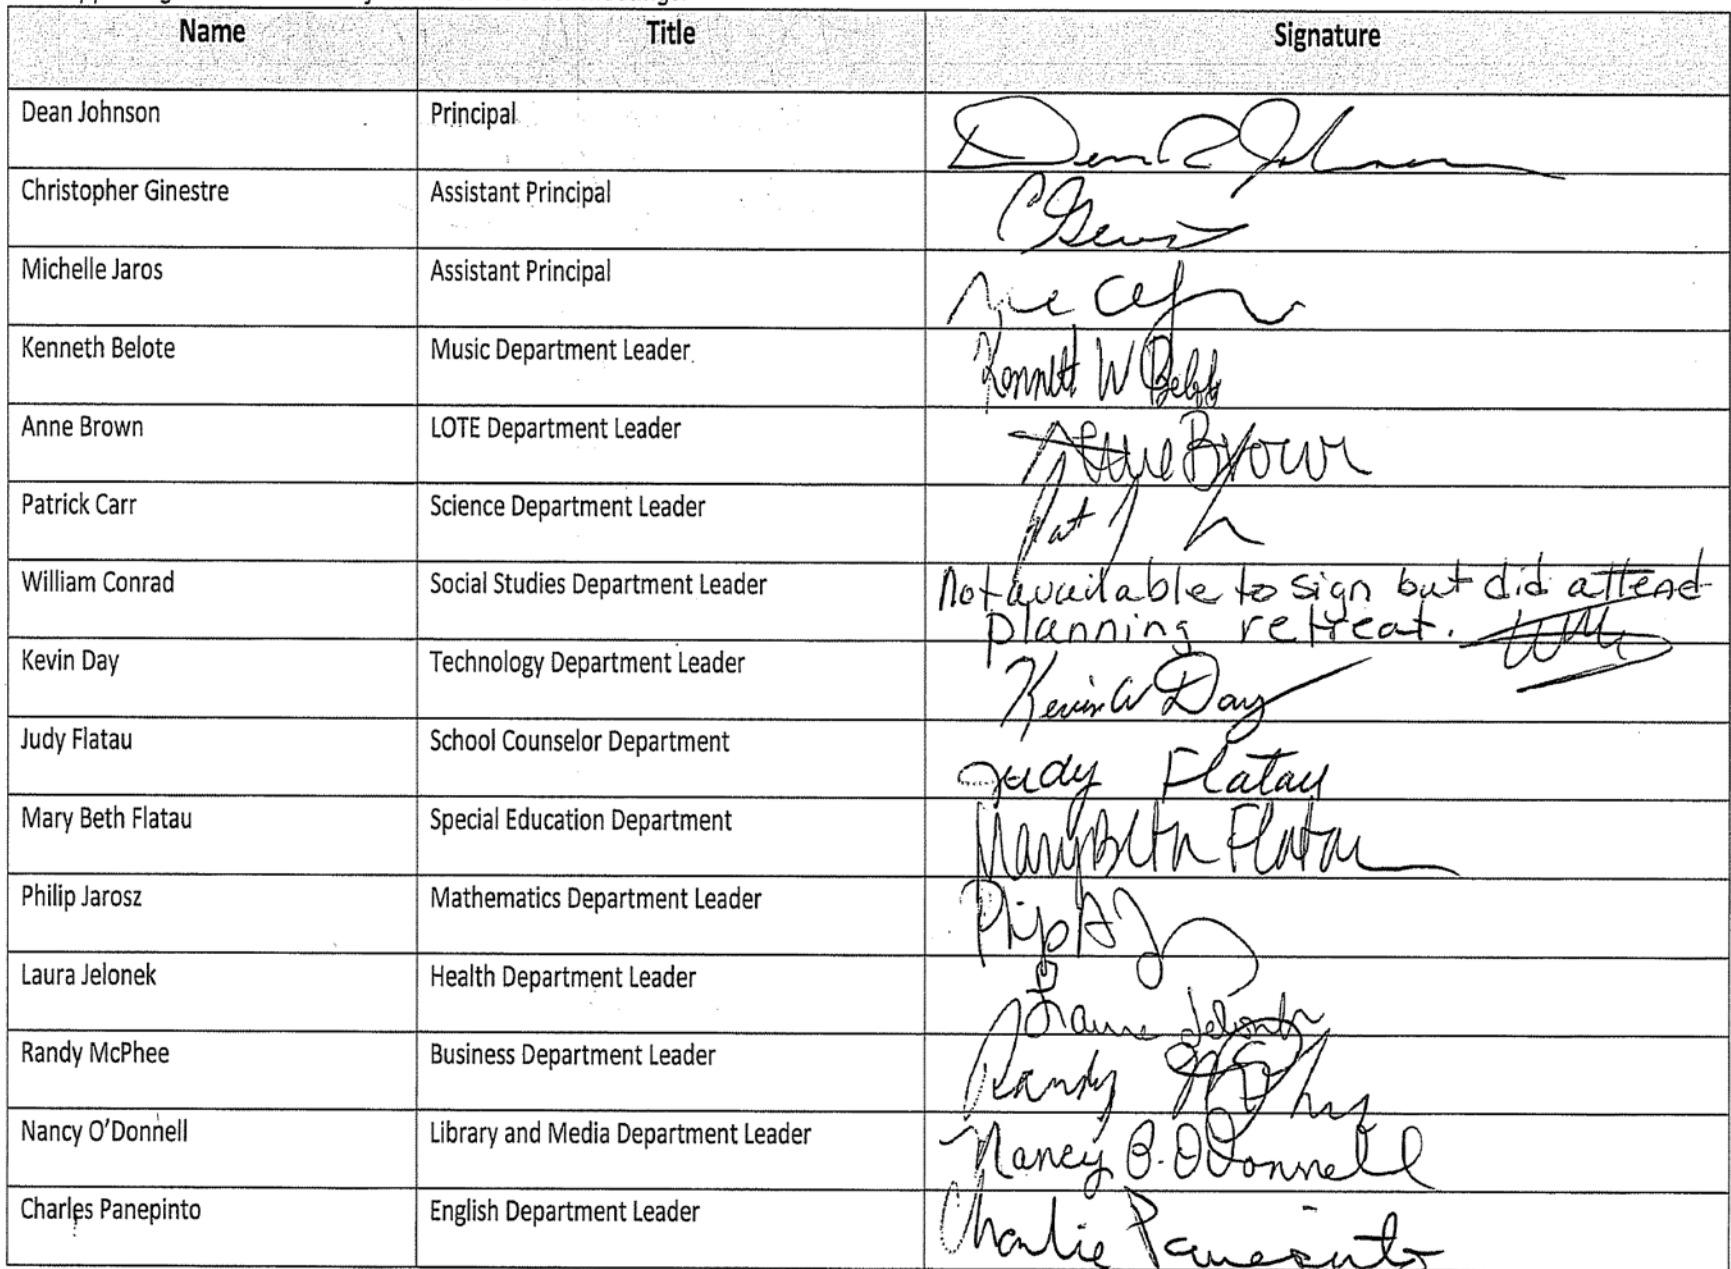 Name Title Signature
Dean Johnson Principal Dean R Johnson
Christopher Ginestre Assistant Principal
Michelle Jaros Assistant Principal
Kenneth Belote Music Department Leader Kenneth W Belote
Anne Brown LOTE Department Leader Anne Brown
Patrick Carr Science Department Leader Pat
William Conrad Social Studies Department Leader Not available to sign but did attend
planning retreat.
Kevin Day Technology Department Leader Kevin W Day
Judy Flatau School Counselor Department Judy Flatau
Mary Beth Flatau Special Education Department Mary Beth Flatau
Philip Jarosz Mathematics Department Leader
Laura Jelonek Health Department Leader Laura Jelonek
Randy McPhee Business Department Leader Randy
Nancy O'Donnell Library and Media Department Leader Nancy B. O'Donnell
Charles Panepinto English Department Leader Charlie Panepinto